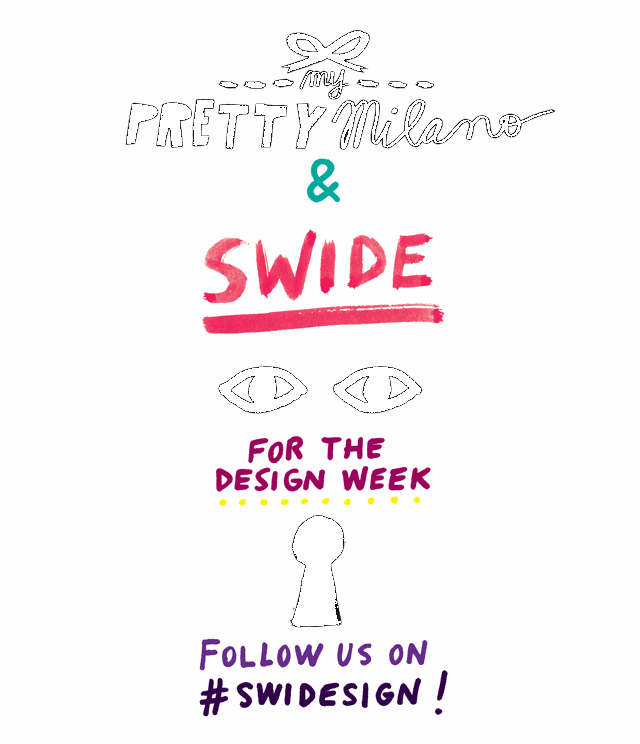 my
PRETTY Milano
&
SWIDE
FOR THE
DESIGN WEEK
FOLLOW US ON
#SWIDESIGN!